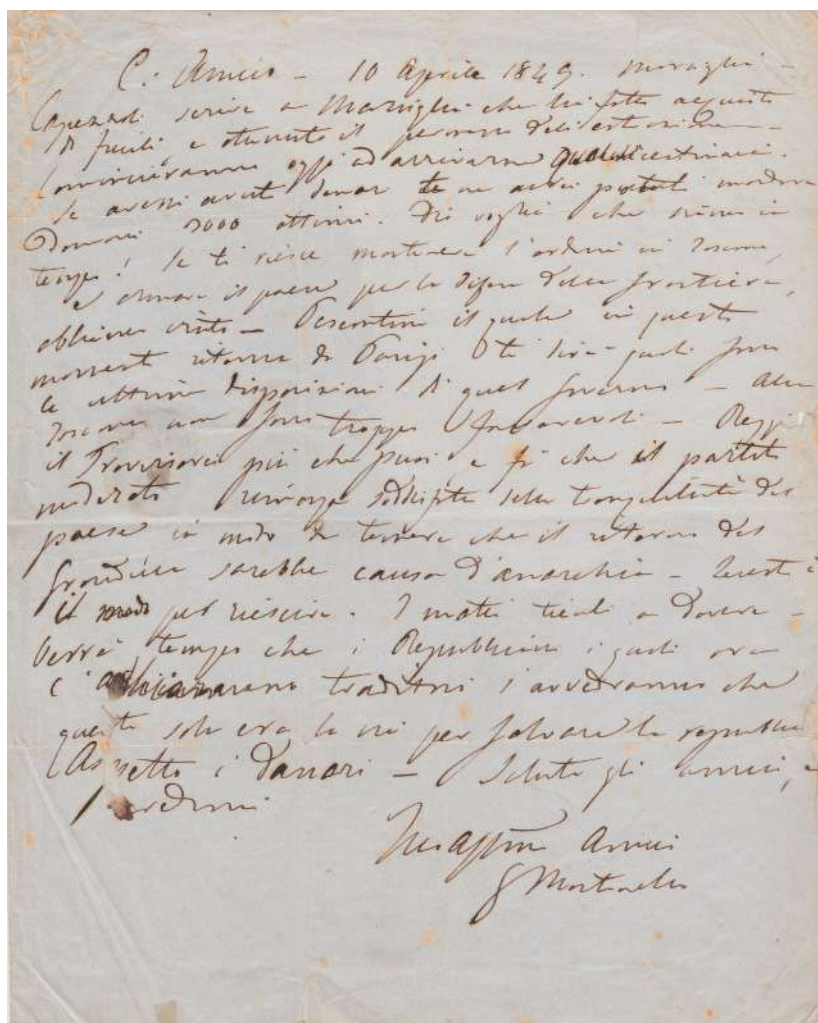 C. Amico – 10 Aprile 1849. Marsiglia –
scrive a Marsiglia che ha fatto acquisto
di fucili e ottenuto il permesso dell'estrazione –
Cominceranno oggi ad arrivarne
Se avessi avuto denar te ne avrei portati
Domani 3000 ottimi. Dio voglia che siamo in
tempo! Se ti riesce mantenere l'ordine in Toscana,
e armare il paese per la difesa della frontiera,
abbiamo vinto – il quale in questo
moment ritorna da Parigi ti dirà quali sono
le ultime disposizioni di quel Governo – Alla
Toscana non sono troppo favorevoli – Reggi
il Provvisorio più che puoi, e fa che il partito
moderato rimanga soddisfatto della tranquillità del
paese in modo da temere che il ritorno del
Granduca sarebbe causa d'anarchia – Questo è
il modo per riescire. I matti tienli a dovere –
Verrà tempo che i Repubblicani i quali ora
ci chiamarono traditori s'avvedranno che
questa sola era la via per salvare la repubblica
Aspetto i danari – Saluta gli amici, e

Tuo Affmo Amico
G Montanelli